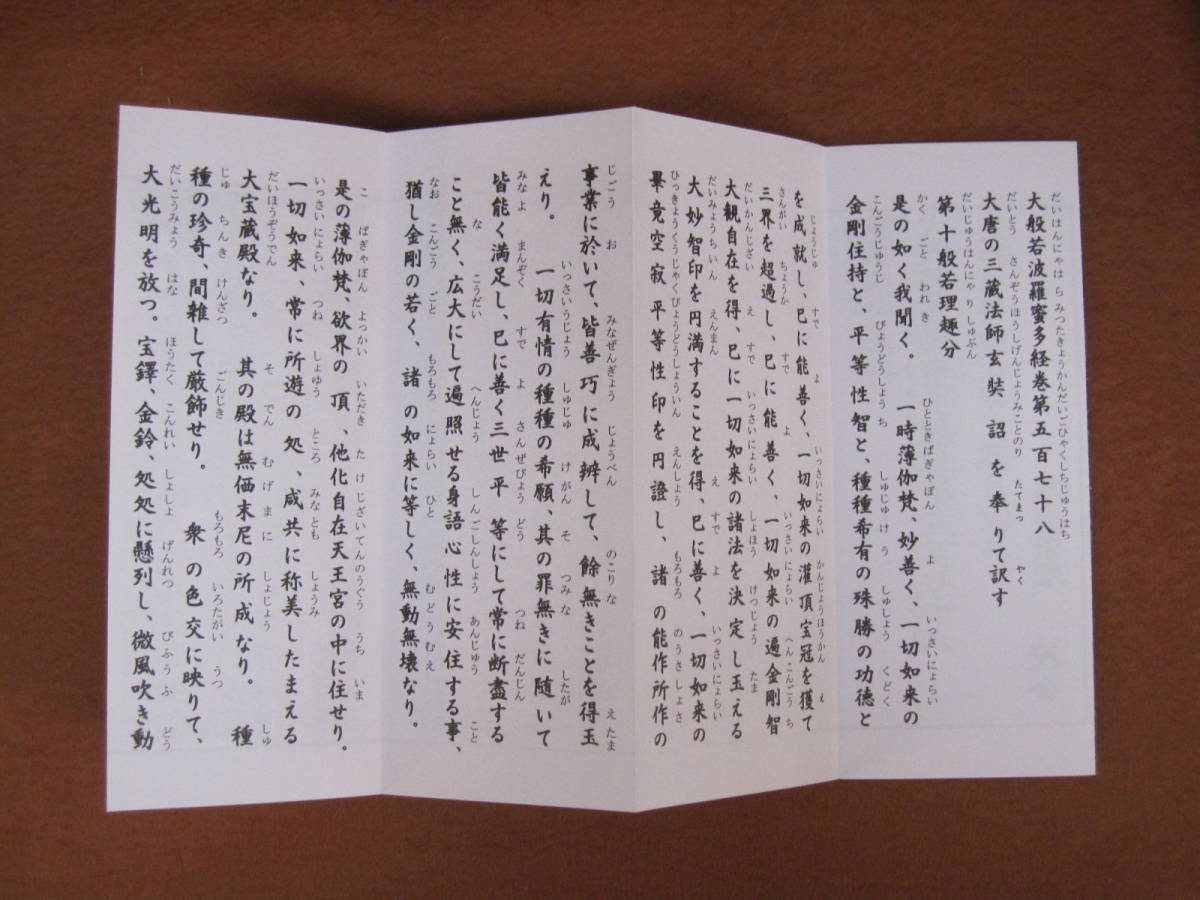 大般若波羅蜜多経巻第五百七十八
大唐の三蔵法師玄奘 詔を奉りて訳す
第十般若理趣分
是の如く我聞く。 一時薄伽梵、妙善く、一切如来の
金剛住持と、平等性智と、種種希有の殊勝の功徳と
を成就し、已に能善く、一切如来の灌頂宝冠を獲て
三界を超過し、已に能善く、一切如来の遍金剛智
大観自在を得、已に一切如来の諸法を決定し玉える
大妙智印を円満することを得、已に善く、一切如来の
畢竟空寂平等性印を円證し、諸の能作所作の
事業に於いて、皆善巧に成辨して、餘無きことを得玉
えり。 一切有情の種種の希願、其の罪無きに随いて
皆能く満足し、已に善く三世平等にして常に断盡する
こと無く、広大にして遍照せる身語心性に安住する事、
猶し金剛の若く、諸の如来に等しく、無動無壊なり。
是の薄伽梵、欲界の頂、他化自在天王宮の中に住せり。
一切如来、常に所遊の処、咸共に称美したまえる
大宝蔵殿なり。 其の殿は無価末尼の所成なり。 種
種の珍奇、間雑して厳飾せり。 衆の色交に映りて、
大光明を放つ。宝鐸、金鈴、処処に懸列し、微風吹き動